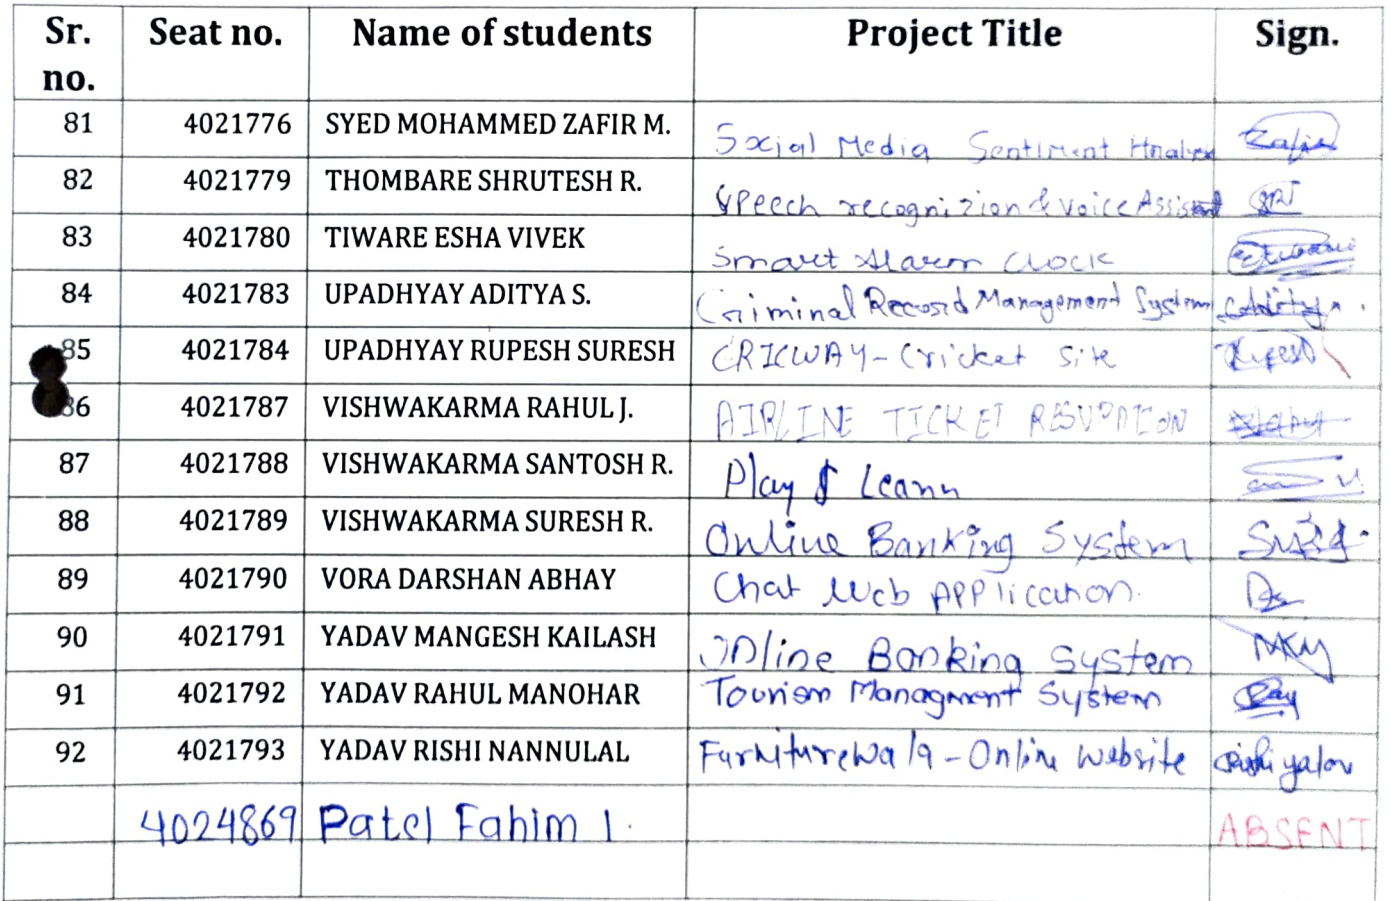 Sr. no. Seat no. Name of students Project Title Sign.
81 4021776 SYED MOHAMMED ZAFIR M. Social Media Sentiment Zafir
82 4021779 THOMBARE SHRUTESH R. Speech recognizion & voice Assistant
83 4021780 TIWARE ESHA VIVEK Smart Alarm Clock
84 4021783 UPADHYAY ADITYA S. Criminal Record Management System
85 4021784 UPADHYAY RUPESH SURESH CRICWAY - Cricket Site
86 4021787 VISHWAKARMA RAHUL J. AIRLINE TICKET
87 4021788 VISHWAKARMA SANTOSH R. Play & Learn
88 4021789 VISHWAKARMA SURESH R. Online Banking System
89 4021790 VORA DARSHAN ABHAY Chat Web APPlication.
90 4021791 YADAV MANGESH KAILASH Online Banking System MKY
91 4021792 YADAV RAHUL MANOHAR Tourism Managment System
92 4021793 YADAV RISHI NANNULAL Furniturewala - Online Website
4024869 Patel Fahim I. ABSENT